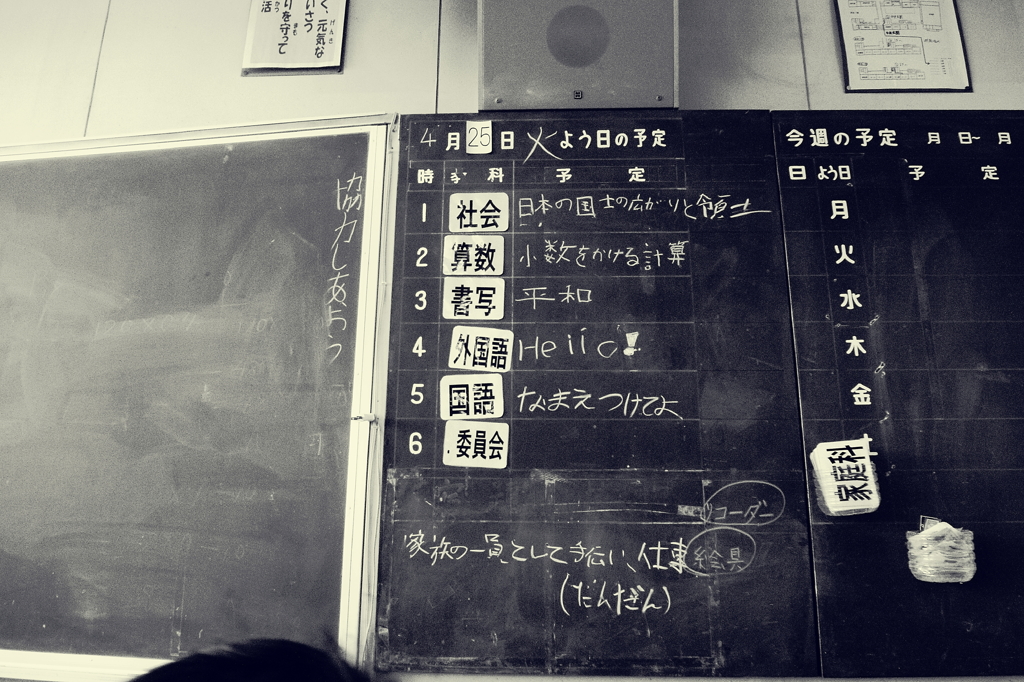 く、元気な
いさう
りを守って
活
協力しあおう
4月25日 火よう日の予定
時 予定
1 社会 日本の国土の広がりと領土
2 算数 小数をかける計算
3 書写 平和
4 外国語 Hello!
5 国語 なまえつけてよ
6 委員会
コーダー
家族の一員として手伝い、仕事 絵具
(だんぎん)
今週の予定 月 日~ 月
日 よう日 予定
月
火
水
木
金
土
家庭科